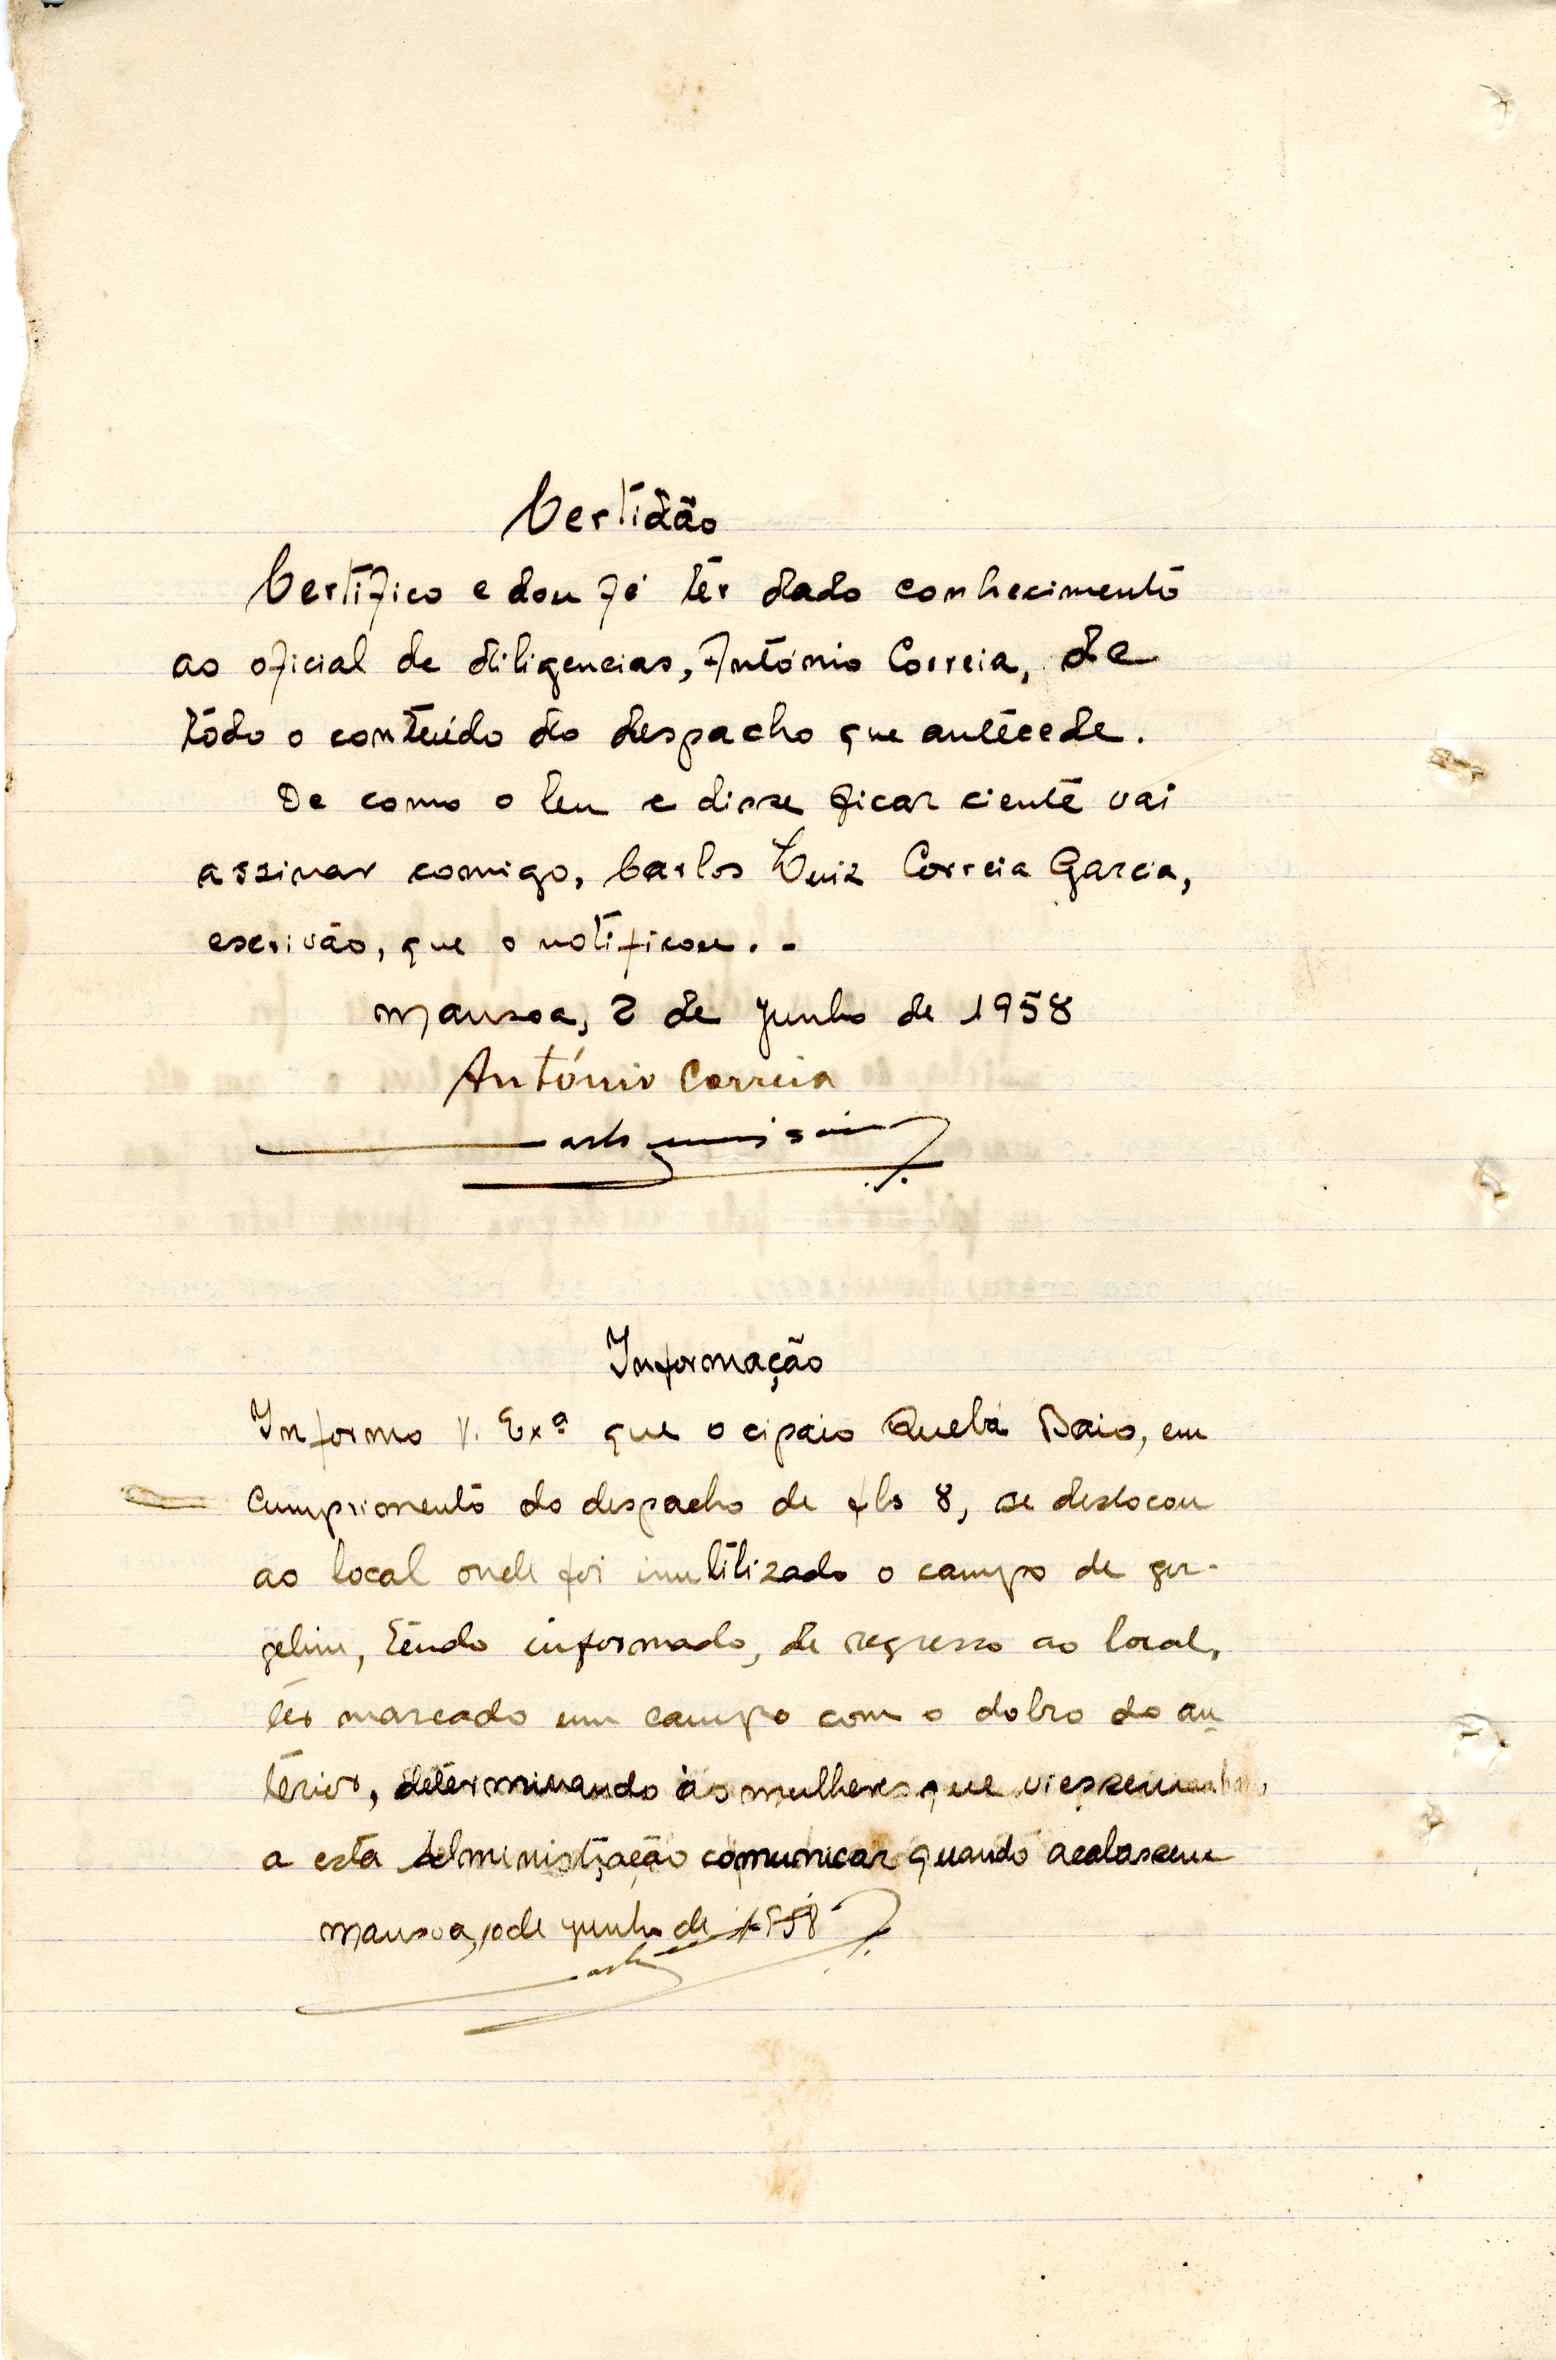 Certidão
Certifico e dou fé ter dado conhecimento
ao oficial de diligencias, António Correia, de
todo o conteúdo do despacho que antecede.
De como o leu e disse ficar ciente vai
assinar comigo, Carlos Luiz Correia Garcia,
escrivão, que o notificou. -
Mansoa, 2 de Junho de 1958
António Correia
Informação
Informo V. Exª que o cipaio Quebá Baio, em
cumprimento do despacho de fls 8, se deslocou
ao local onde foi inutilizado o campo de ger-
gelim, tendo informado, de regresso ao local,
ter marcado um campo com o dobro do an
terior, determinando às mulheres que viessem
a esta Administração comunicar quando acabassem
Mansoa, 10 de Junho de 1958